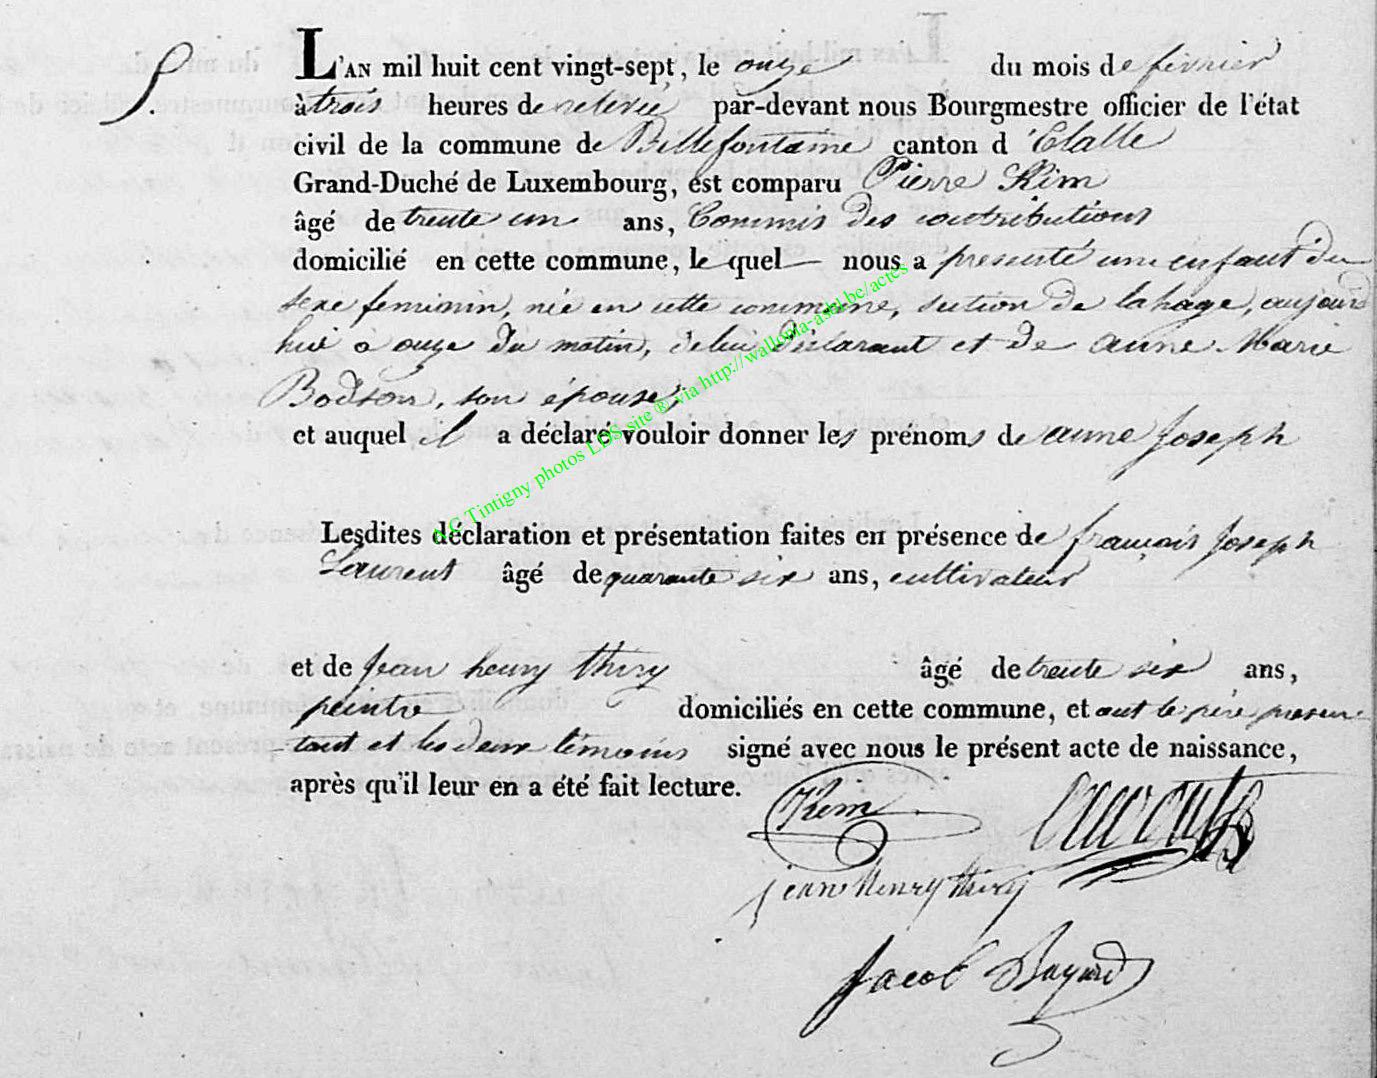 L'AN mil huit cent vingt-sept, le onze du mois de fevrier
à trois heures de relevée par-devant nous Bourgmestre officier de l'état
civil de la commune de Bellefontaine canton d'Etalle
Grand-Duché de Luxembourg, est comparu Pierre Rim
âgé de trente un ans, Commis des contributions
domicilié en cette commune, lequel nous a presenté un enfant du
sexe feminin, née en cette commune, section de lahage, aujourd
hui à onze du matin, de lui déclarant et de anne Marie
Bodson, son épouse,
et auquel il a déclaré vouloir donner les prénoms de anne Joseph
Lesdites déclaration et présentation faites en présence de françois Joseph
Laurent âgé de quarante six ans, cultivateur
et de Jean henry thiry âgé de trente six ans,
peintre domiciliés en cette commune, et ont le père presen
tant et les deux témoins signé avec nous le présent acte de naissance,
après qu'il leur en a été fait lecture.
Rim
jean Henry thiry
Jacob Bayard
AC Tintigny photos LDS site ® via http://wallonia-asbl.be/actes